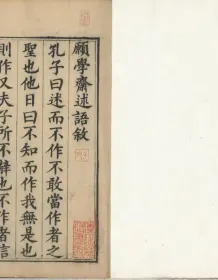 願學齋述語敘
孔子曰述而不作不敢當作者之
聖也他日曰不知而作我無是也
則作又夫子所不辭也不作者言